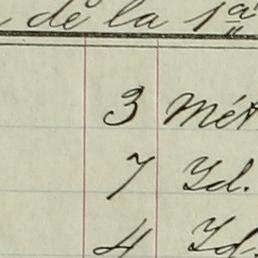 de la 1ª
3 Mét
7 Id.
4 Id.